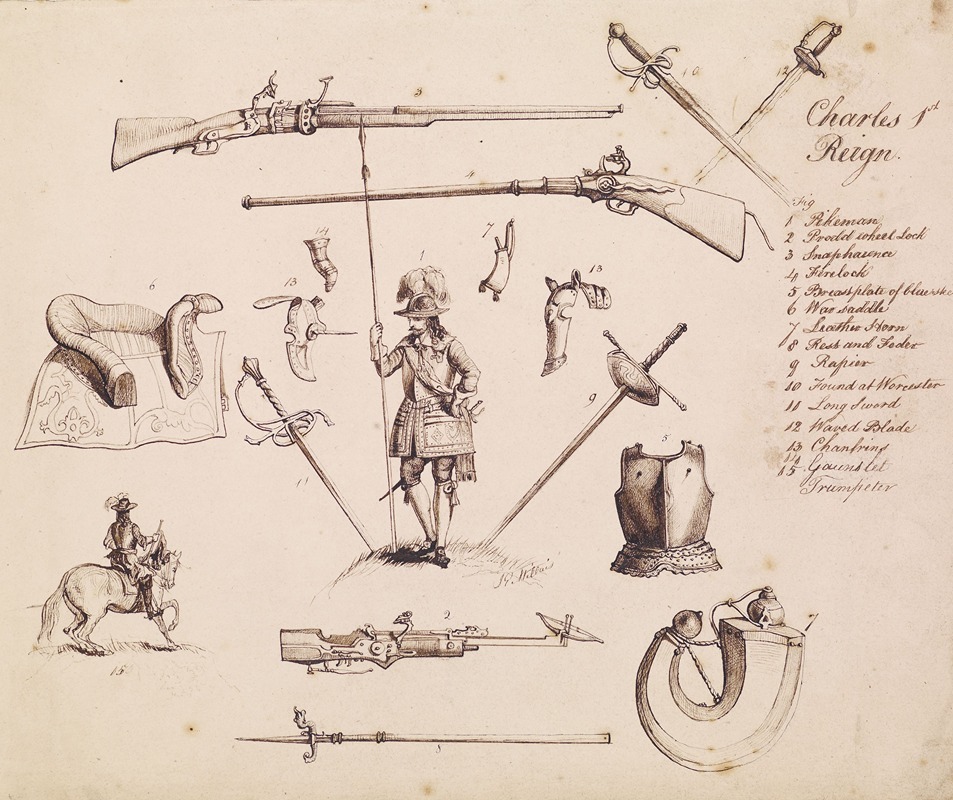 Charles 1st
Reign.
Fig
1 Pikeman
2 Prodd wheel Lock
3 Snaphaence
4 Firelock
5 Breastplate of blue
6 War saddle
7 Leather Horn
8 Rest and Feder
9 Rapier
10 Found at Worcester
11 Long Sword
12 Waved Blade
13 Chanfrins
14 Gauntlet
15 Trumpeter
3
10
12
4
14
7
1
13
13
6
9
11
5
15
2
7
8